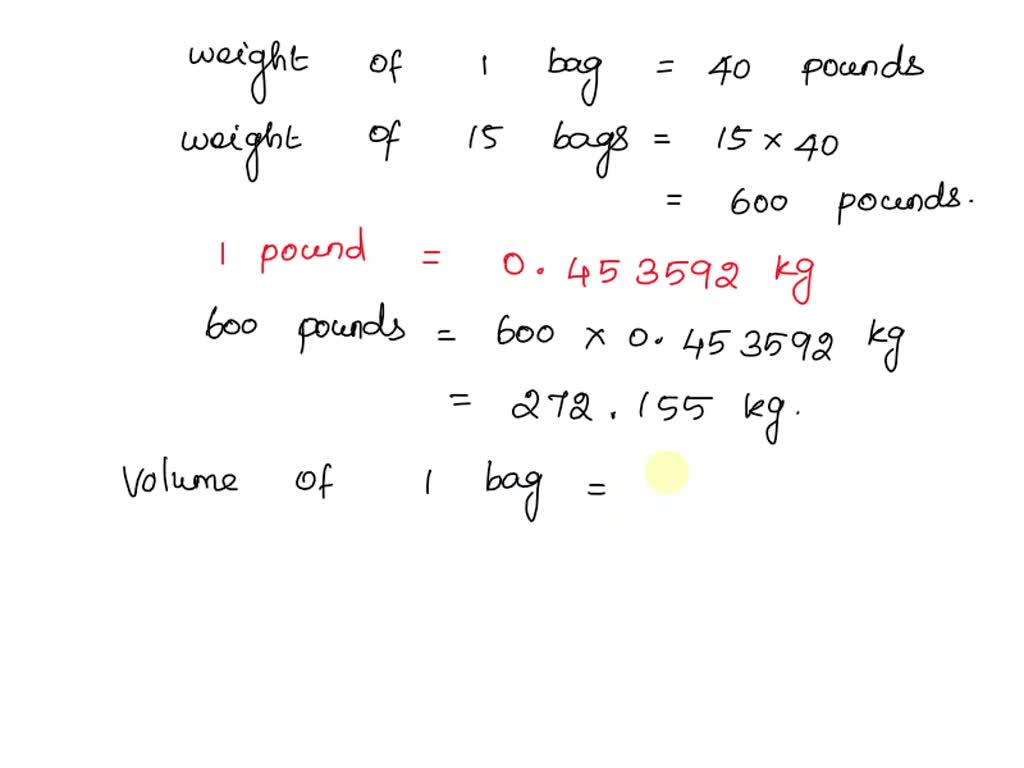 weight of 1 bag = 40 pounds
weight of 15 bags = 15 × 40
= 600 pounds.
1 pound = 0.453592 kg
600 pounds = 600 × 0.453592 kg
= 272.155 kg.
Volume of 1 bag =